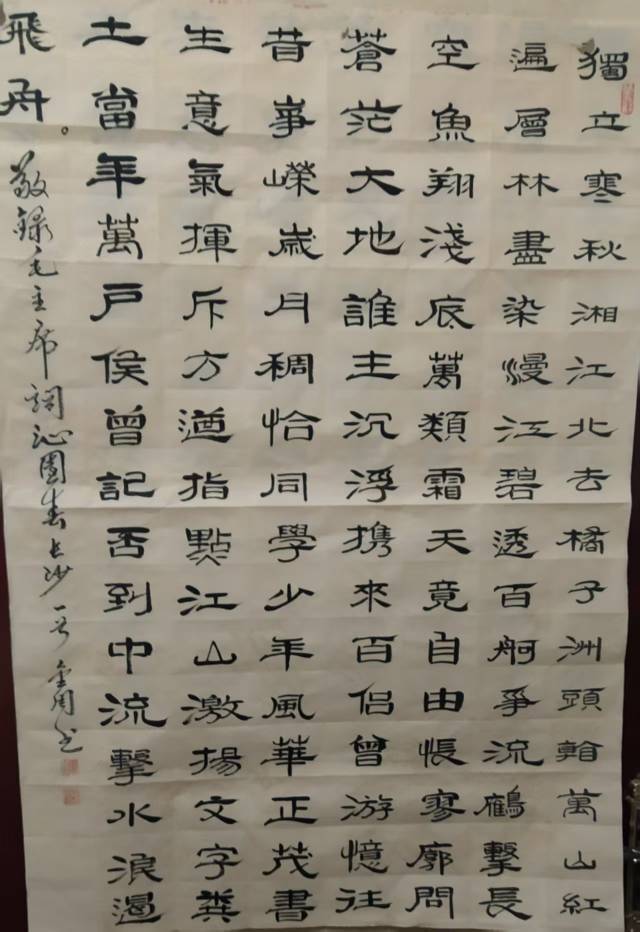 獨立寒秋湘江北去橘子洲頭看萬山紅
遍層林盡染漫江碧透百舸爭流鶴擊長
空魚翔淺底萬類霜天竟自由悵寥廓問
蒼茫大地誰主沉浮携來百侶曾游憶往
昔崢嶸歲月稠恰同學少年風華正茂書
生意氣揮斥方遒指點江山激揚文字糞
土當年萬户侯曾記否到中流擊水浪遏
飛舟。
敬録毛主席詞沁園春長沙一首 金周書